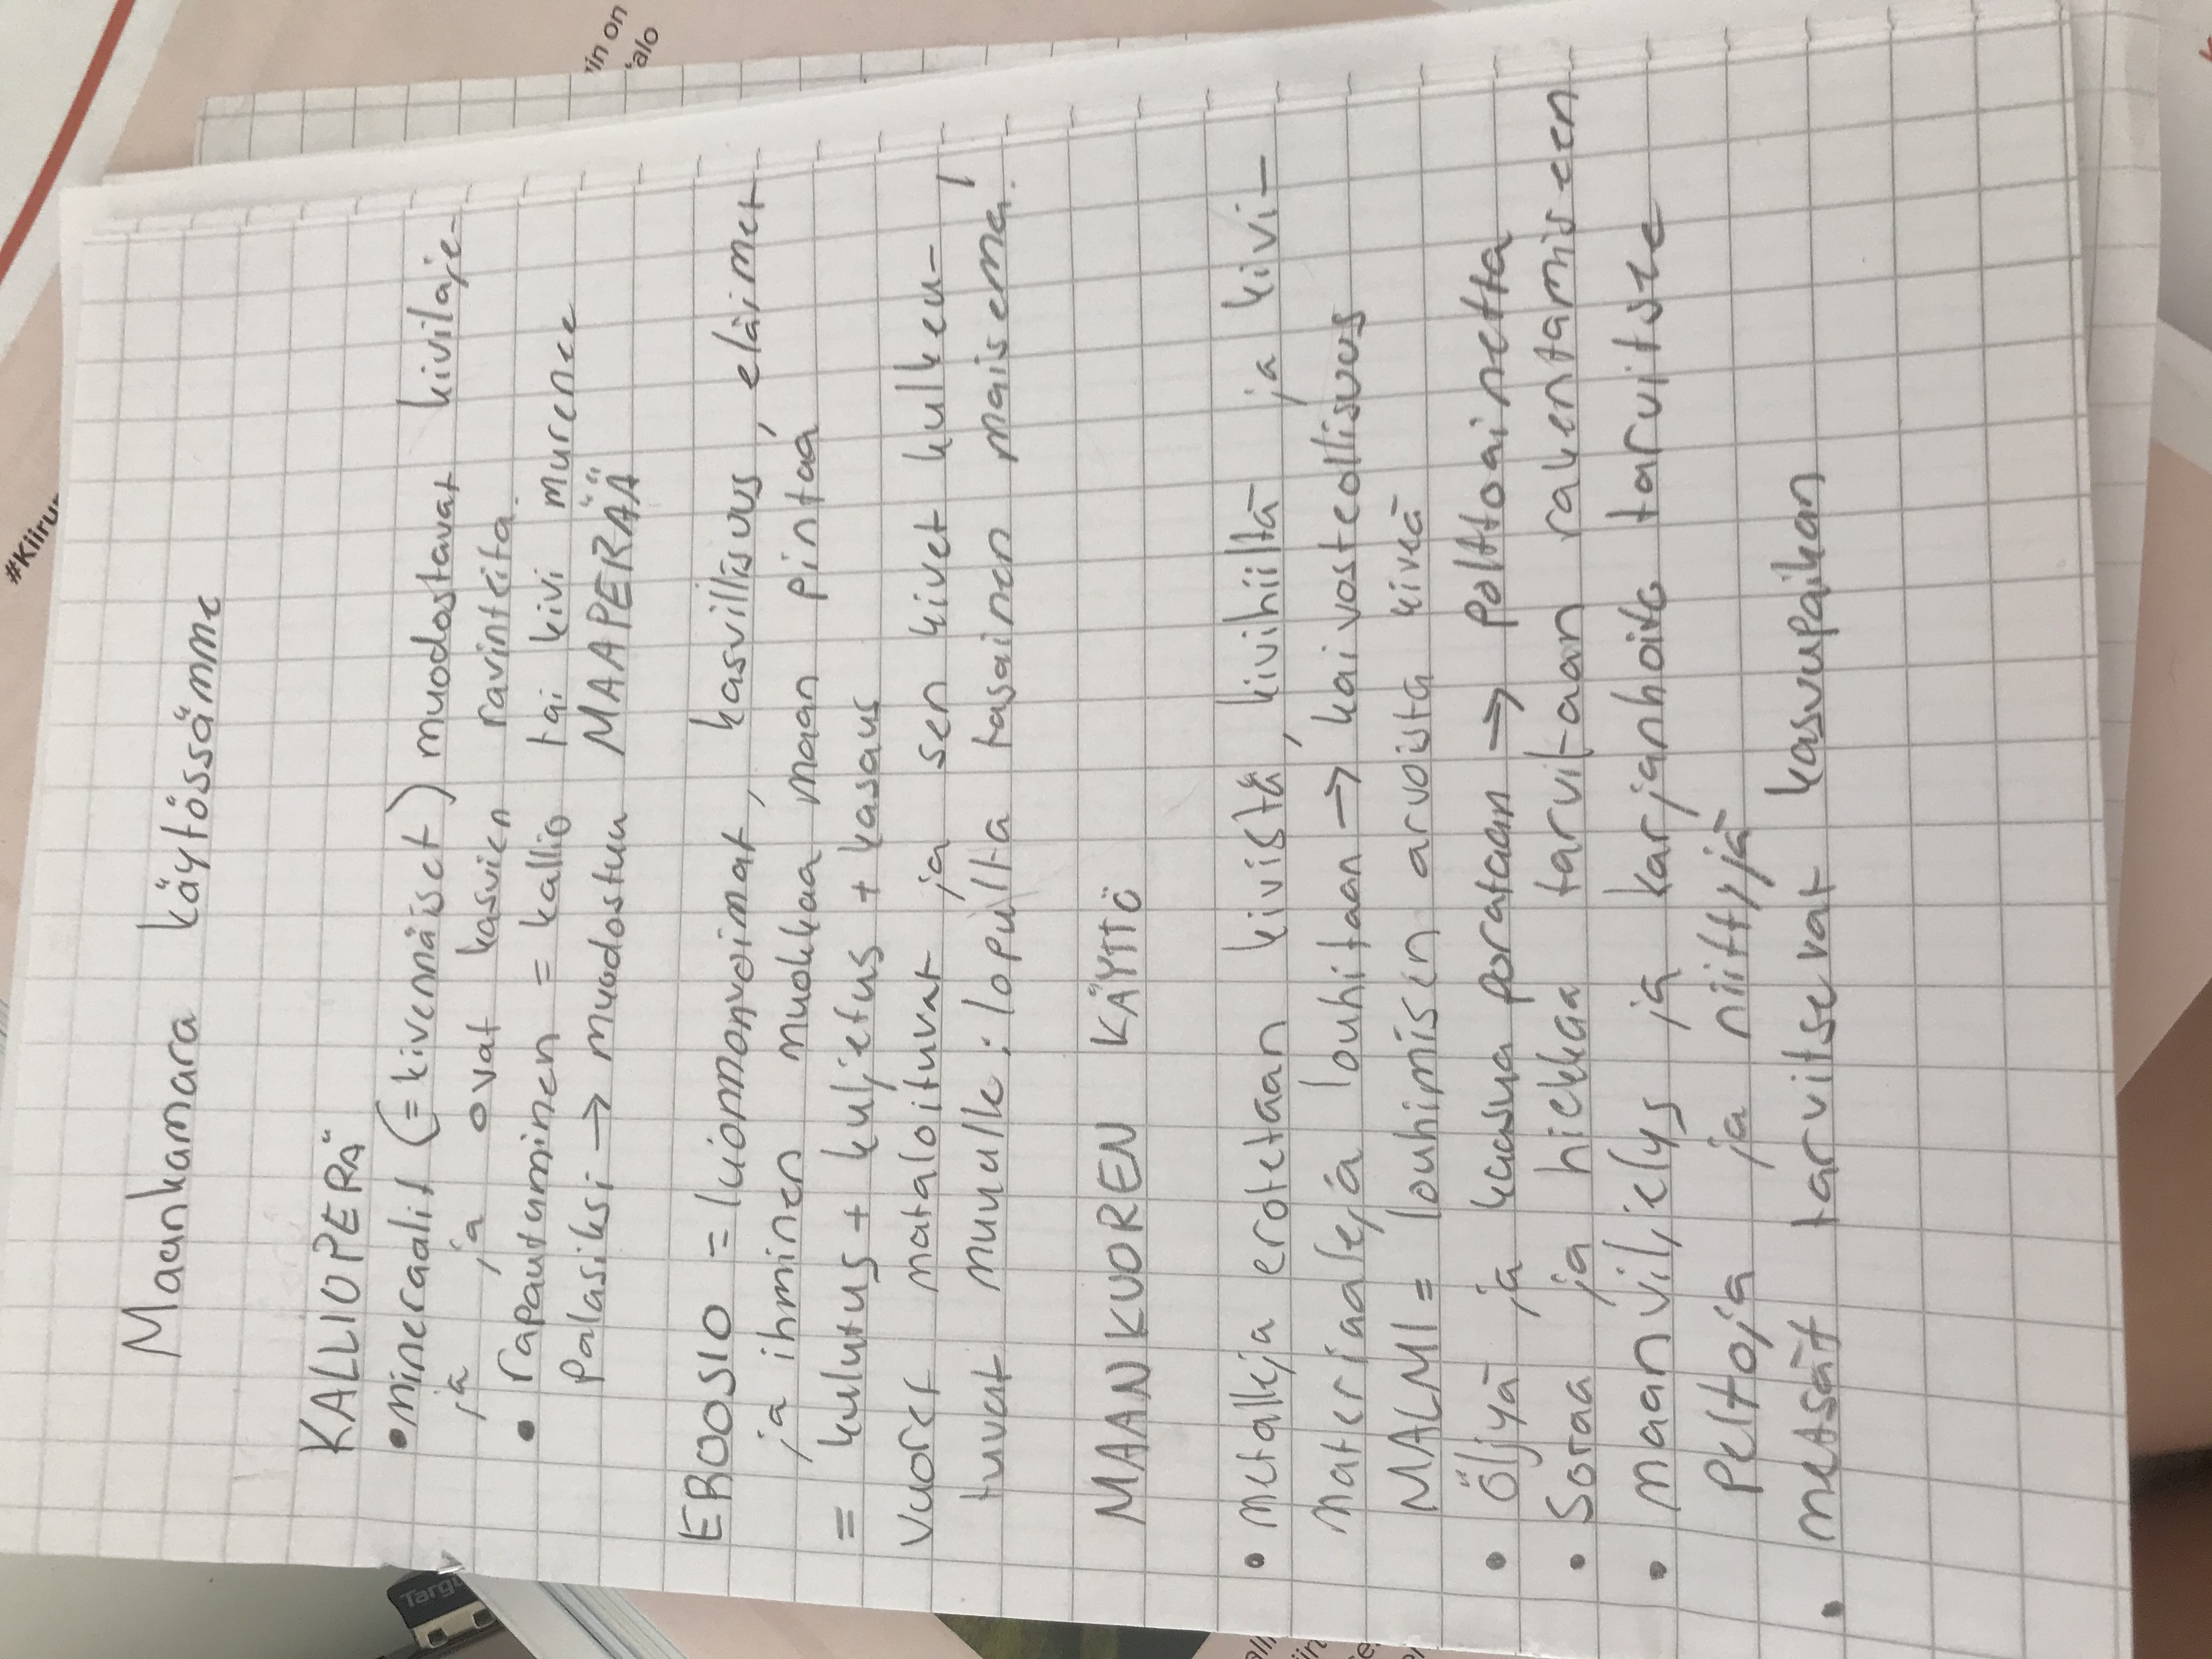 Maankamara käytössämme
KALLIOPERÄ
• mineraalit (= kivennäiset) muodostavat kivilaje-
ja ja ovat kasvien ravinteita.
• rapautuminen = kallio tai kivi murenee
palasiksi → muodostuu MAAPERÄÄ
EROOSIO = luonnonvoimat, kasvillisuus, eläimet
ja ihminen muokkaa maan pintaa
= kulutus + kuljetus + kasaus
vuoret mataloituvat ja sen kivet kulkeu-
tuvat muualle: lopulta tasainen maisema!
MAANKUOREN KÄYTTÖ
• metalleja erotetaan kivistä, kivihiiltä ja kivi-
materiaaleja louhitaan → kaivosteollisuus
MALMI = louhimisen arvoista kiveä
• öljyä ja kaasua porataan → polttoainetta
• Soraa ja hiekkaa tarvitaan rakentamiseen
• maanviljelys ja karjanhoito tarvitsee
peltoja ja niittyjä
• metsät tarvitsevat kasvupaikan
#Kiiru
Targu